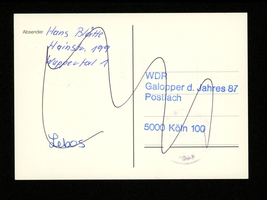 Absender
Hans Blatt
Hainstr. 199
Wuppertal 1
Lebos
WDR
Galopper d. Jahres 87
Postfach
5000 Köln 100